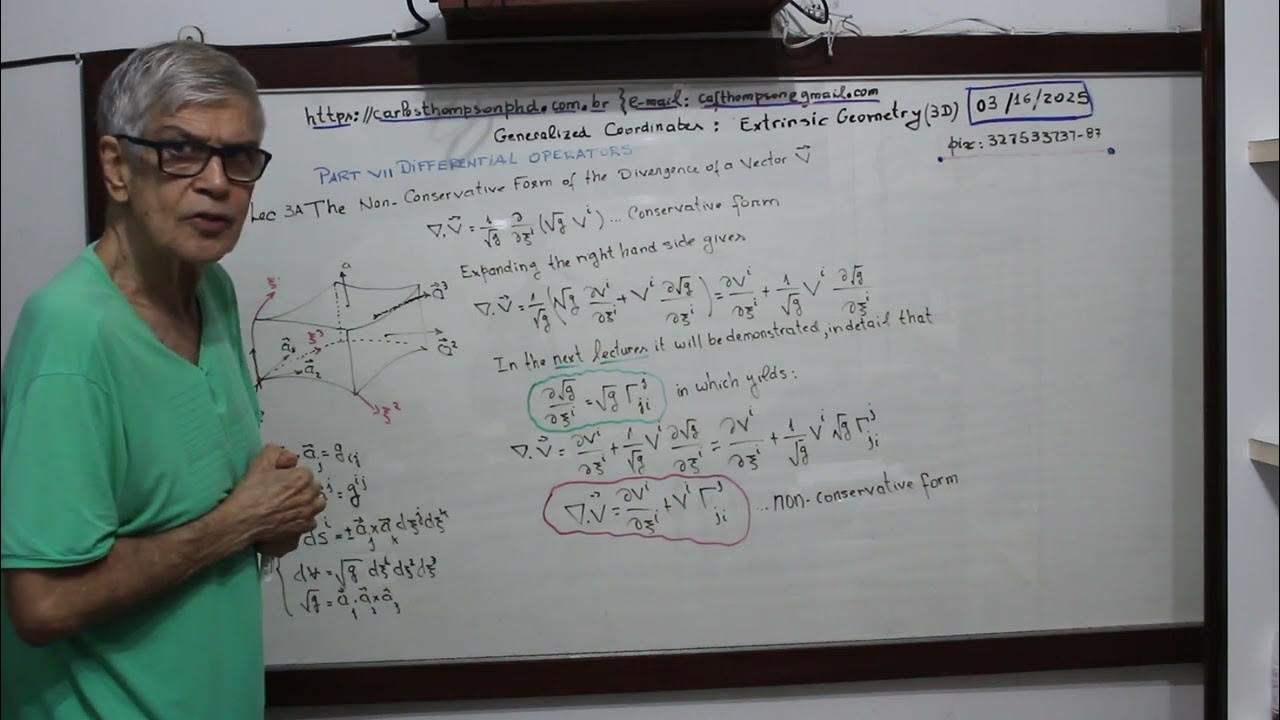 https://carlosthompsonphd.com.br } e-mail: cafthompson@gmail.com
Generalized Coordinates: Extrinsic Geometry (3D)
03/16/2025
pix: 327533737-87
PART VII DIFFERENTIAL OPERATORS
Lec 3A The Non-Conservative Form of the Divergence of a Vector V⃗
∇.V⃗ = 1/√g ∂/∂ξ^i (√g V^i) ... Conservative form
Expanding the right hand side gives
∇.V⃗ = 1/√g (√g ∂V^i/∂ξ^i + V^i ∂√g/∂ξ^i) = ∂V^i/∂ξ^i + 1/√g V^i ∂√g/∂ξ^i
In the next lectures it will be demonstrated, in detail that
∂√g/∂ξ^i = √g Γ^j_ji in which yields:
∇.V⃗ = ∂V^i/∂ξ^i + 1/√g V^i ∂√g/∂ξ^i = ∂V^i/∂ξ^i + 1/√g V^i √g Γ^j_ji
∇.V⃗ = ∂V^i/∂ξ^i + V^i Γ^j_ji ... non-conservative form
ξ^1
a⃗^3
ξ^3
a⃗^2
a⃗_2
ξ^2
. a⃗_j = g_ij
= g^ij
dS^i = ± a⃗_j × a⃗_k dξ^j dξ^k
dV = √g dξ^1 dξ^2 dξ^3
√g = a⃗_1 . a⃗_2 × a⃗_3